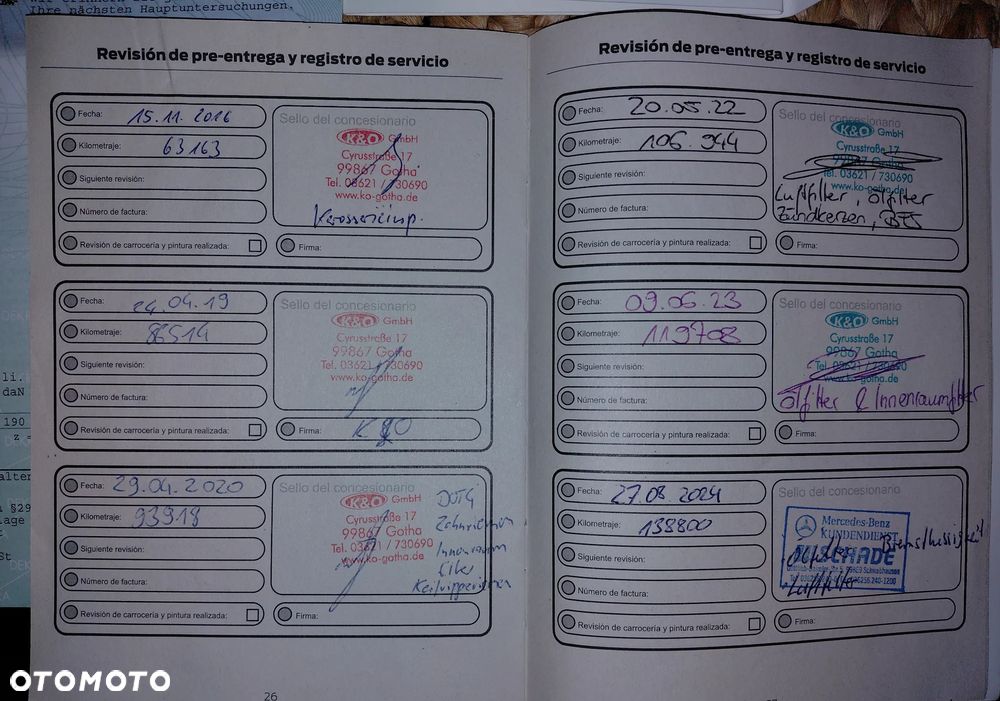 Ihre nächsten Hauptuntersuchungen.
Revisión de pre-entrega y registro de servicio
Fecha: 15.11.2016
Kilometraje: 63163
Siguiente revisión:
Número de factura:
Revisión de carrocería y pintura realizada:
Sello del concesionario
K&O GmbH
Cyrusstraße 17
99867 Gotha
Tel. 03621 / 730690
www.ko-gotha.de
Karosserieinsp.
Firma:
Fecha: 24.04.19
Kilometraje: 86514
Siguiente revisión:
Número de factura:
Revisión de carrocería y pintura realizada:
Sello del concesionario
K&O GmbH
Cyrusstraße 17
99867 Gotha
Tel. 03621 / 730690
www.ko-gotha.de
Firma: K&O
Fecha: 29.04.2020
Kilometraje: 93918
Siguiente revisión:
Número de factura:
Revisión de carrocería y pintura realizada:
Sello del concesionario
K&O GmbH
Cyrusstraße 17
99867 Gotha
Tel. 03621 / 730690
www.ko-gotha.de
DOT4
Zahnriemen
Innenraum
Filter
Keilrippenriemen
Firma:
26
Revisión de pre-entrega y registro de servicio
Fecha: 20.05.22
Kilometraje: 106.944
Siguiente revisión:
Número de factura:
Revisión de carrocería y pintura realizada:
Sello del concesionario
K&O GmbH
Cyrusstraße 17
99867 Gotha
Tel. 03621 / 730690
www.ko-gotha.de
Luftfilter, Ölfilter
Zündkerzen, BFS
Firma:
Fecha: 09.06.23
Kilometraje: 119708
Siguiente revisión:
Número de factura:
Revisión de carrocería y pintura realizada:
Sello del concesionario
K&O GmbH
Cyrusstraße 17
99867 Gotha
Tel. 03621 / 730690
www.ko-gotha.de
Ölfilter & Innenraumfilter
Firma:
Fecha: 27.08.2024
Kilometraje: 133800
Siguiente revisión:
Número de factura:
Revisión de carrocería y pintura realizada:
Sello del concesionario
Mercedes-Benz
KUNDENDIENST
Bremsflüssigkeit
Luftfilter
Firma:
OTOMOTO